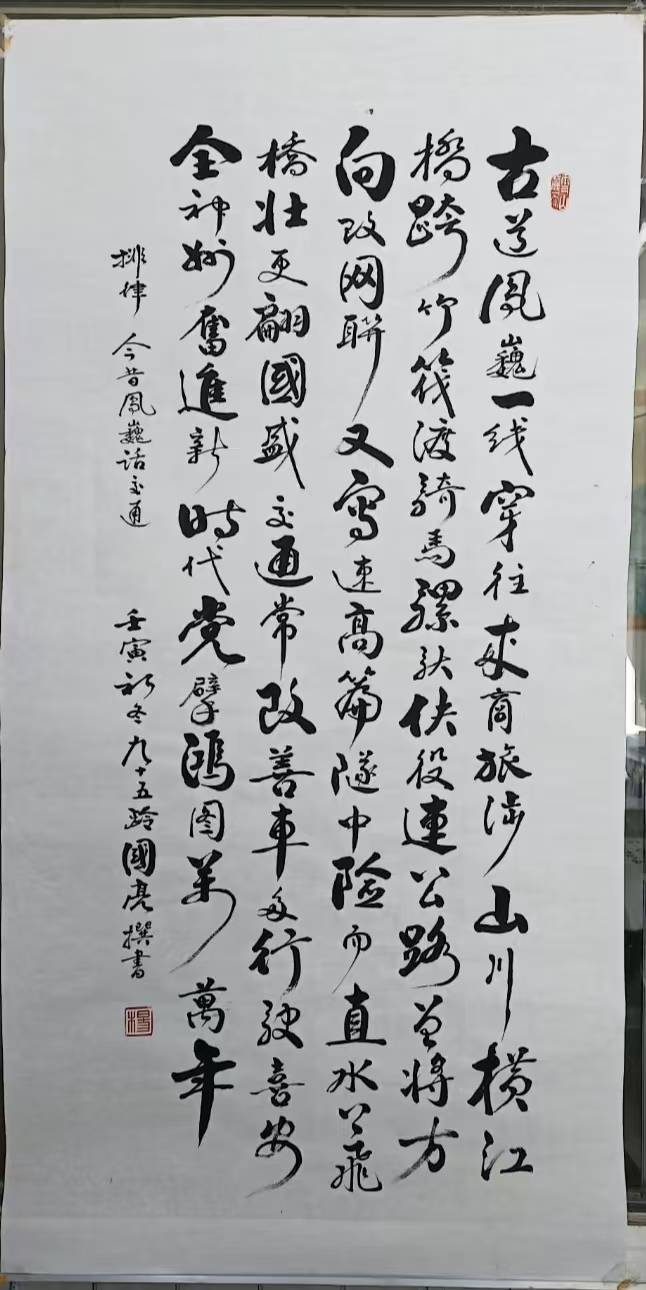 古道鳳巍一线穿往来商旅涉山川横江
橋跨竹筏渡騎馬騾馱伕役連公路曾将方
向改网联又寫速高篇隧中险而直水上飛
橋壮更翩國盛交通常改善車多行驶喜安
全神州奮進新时代党擘鴻图萬年
排律 今昔鳳巍话交通 壬寅初冬九十五龄國亮撰書
楊